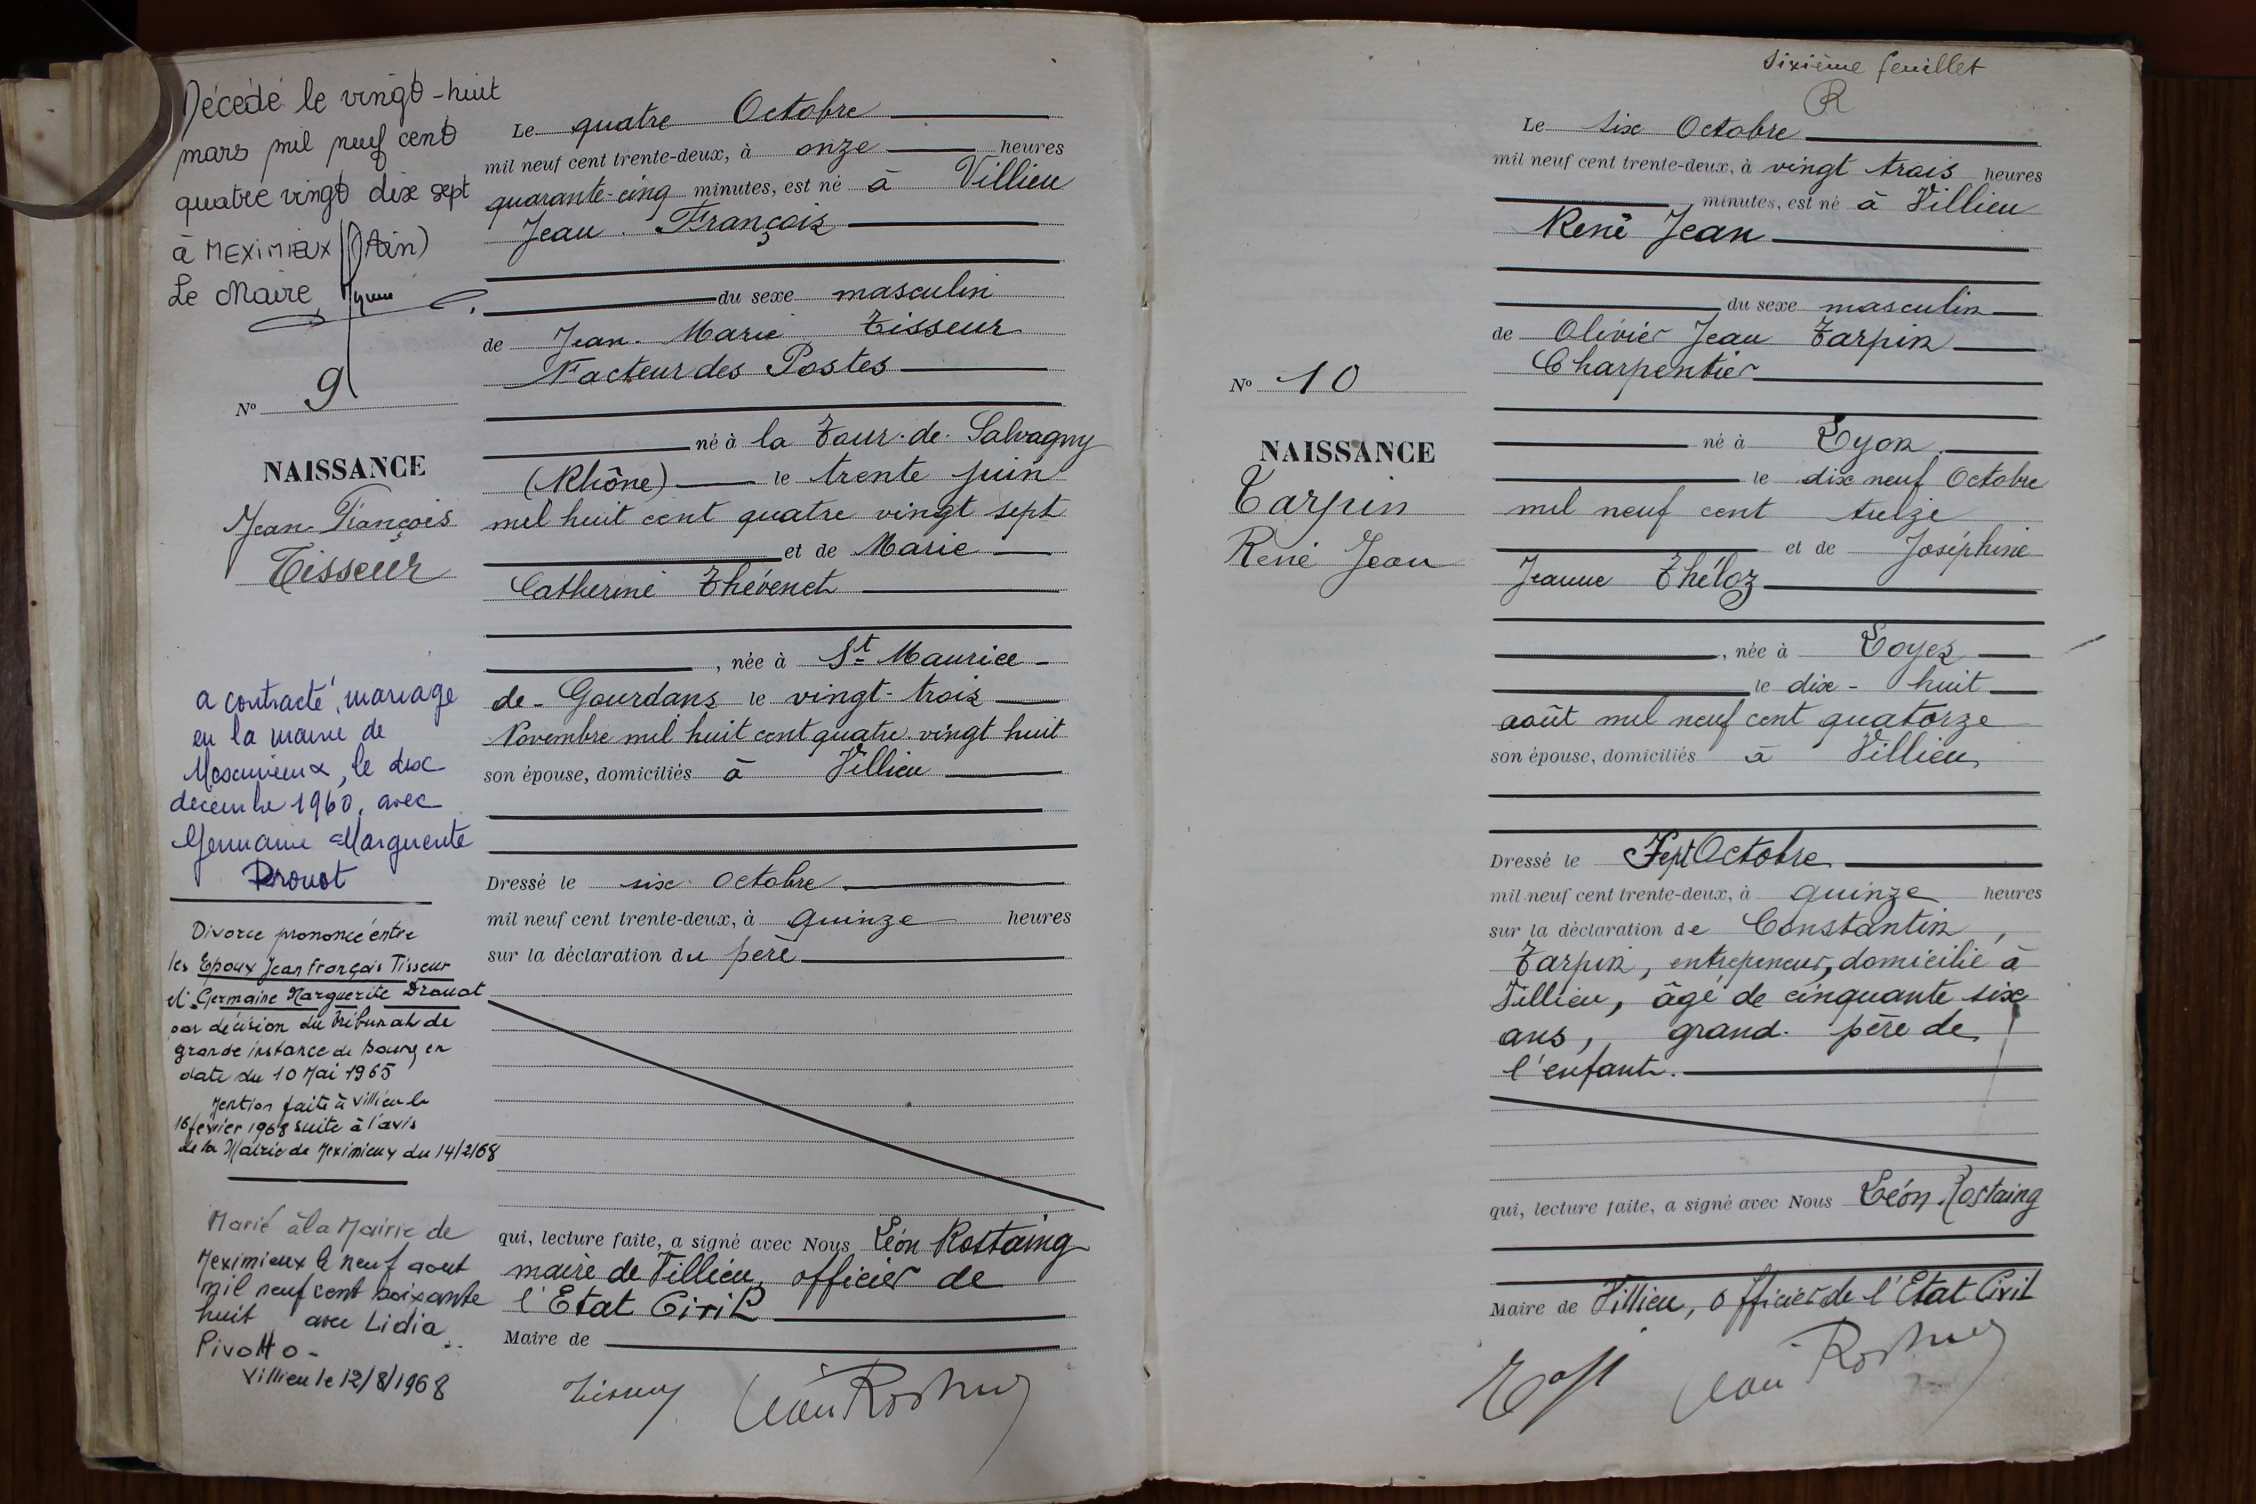 Décédé le vingt-huit
mars mil neuf cent
quatre vingt dix sept
à MEXIMIEUX (Ain)
Le Maire
Nº 9
NAISSANCE
Jean-François
Tisseur
a contracté mariage
en la mairie de
Meximieux, le dix
décembre 1960, avec
Germaine Marguerite
Drouot
Divorce prononcé entre
les Epoux Jean François Tisseur
et Germaine Marguerite Drouot
par décision du Tribunal de
grande instance de Bourg en
date du 10 Mai 1965
Mention faite à Villieu le
16 février 1968 suite à l'avis
de la Mairie de Meximieux du 14/2/68
Marié à la Mairie de
Meximieux le neuf aout
mil neuf cent soixante
huit avec Lidia
Pivotto -
Villieu le 12/8/1968
Le quatre Octobre
mil neuf cent trente-deux, à onze heures
quarante-cinq minutes, est né à Villieu
Jean François
du sexe masculin
de Jean-Marie Tisseur
Facteur des Postes
né à la Tour-de-Salvagny
(Rhône) le trente juin
mil huit cent quatre vingt sept
et de Marie
Catherine Thévenet
, née à St Maurice
de-Gourdans le vingt-trois
Novembre mil huit cent quatre vingt huit
son épouse, domiciliés à Villieu
Dressé le six Octobre
mil neuf cent trente-deux, à quinze heures
sur la déclaration du père
qui, lecture faite, a signé avec Nous Léon Rostaing
maire de Villieu, officier de
l'Etat Civil
Maire de
Tisseur Léon Rostaing
Sixième feuillet
R
Nº 10
NAISSANCE
Tarpin
René Jean
Le six Octobre
mil neuf cent trente-deux, à vingt trois heures
minutes, est né à Villieu
René Jean
du sexe masculin
de Olivier Jean Tarpin
Charpentier
né à Lyon
le dix neuf Octobre
mil neuf cent treize
et de Joséphine
Jeanne Théloz
, née à Loyes
le dix-huit
août mil neuf cent quatorze
son épouse, domiciliés à Villieu
Dressé le Sept Octobre
mil neuf cent trente-deux, à quinze heures
sur la déclaration de Constantin
Tarpin, entrepreneur, domicilié à
Villieu, âgé de cinquante six
ans, grand-père de
l'enfant.
qui, lecture faite, a signé avec Nous Léon Rostaing
Maire de Villieu, Officier de l'Etat Civil
Léon Rostaing